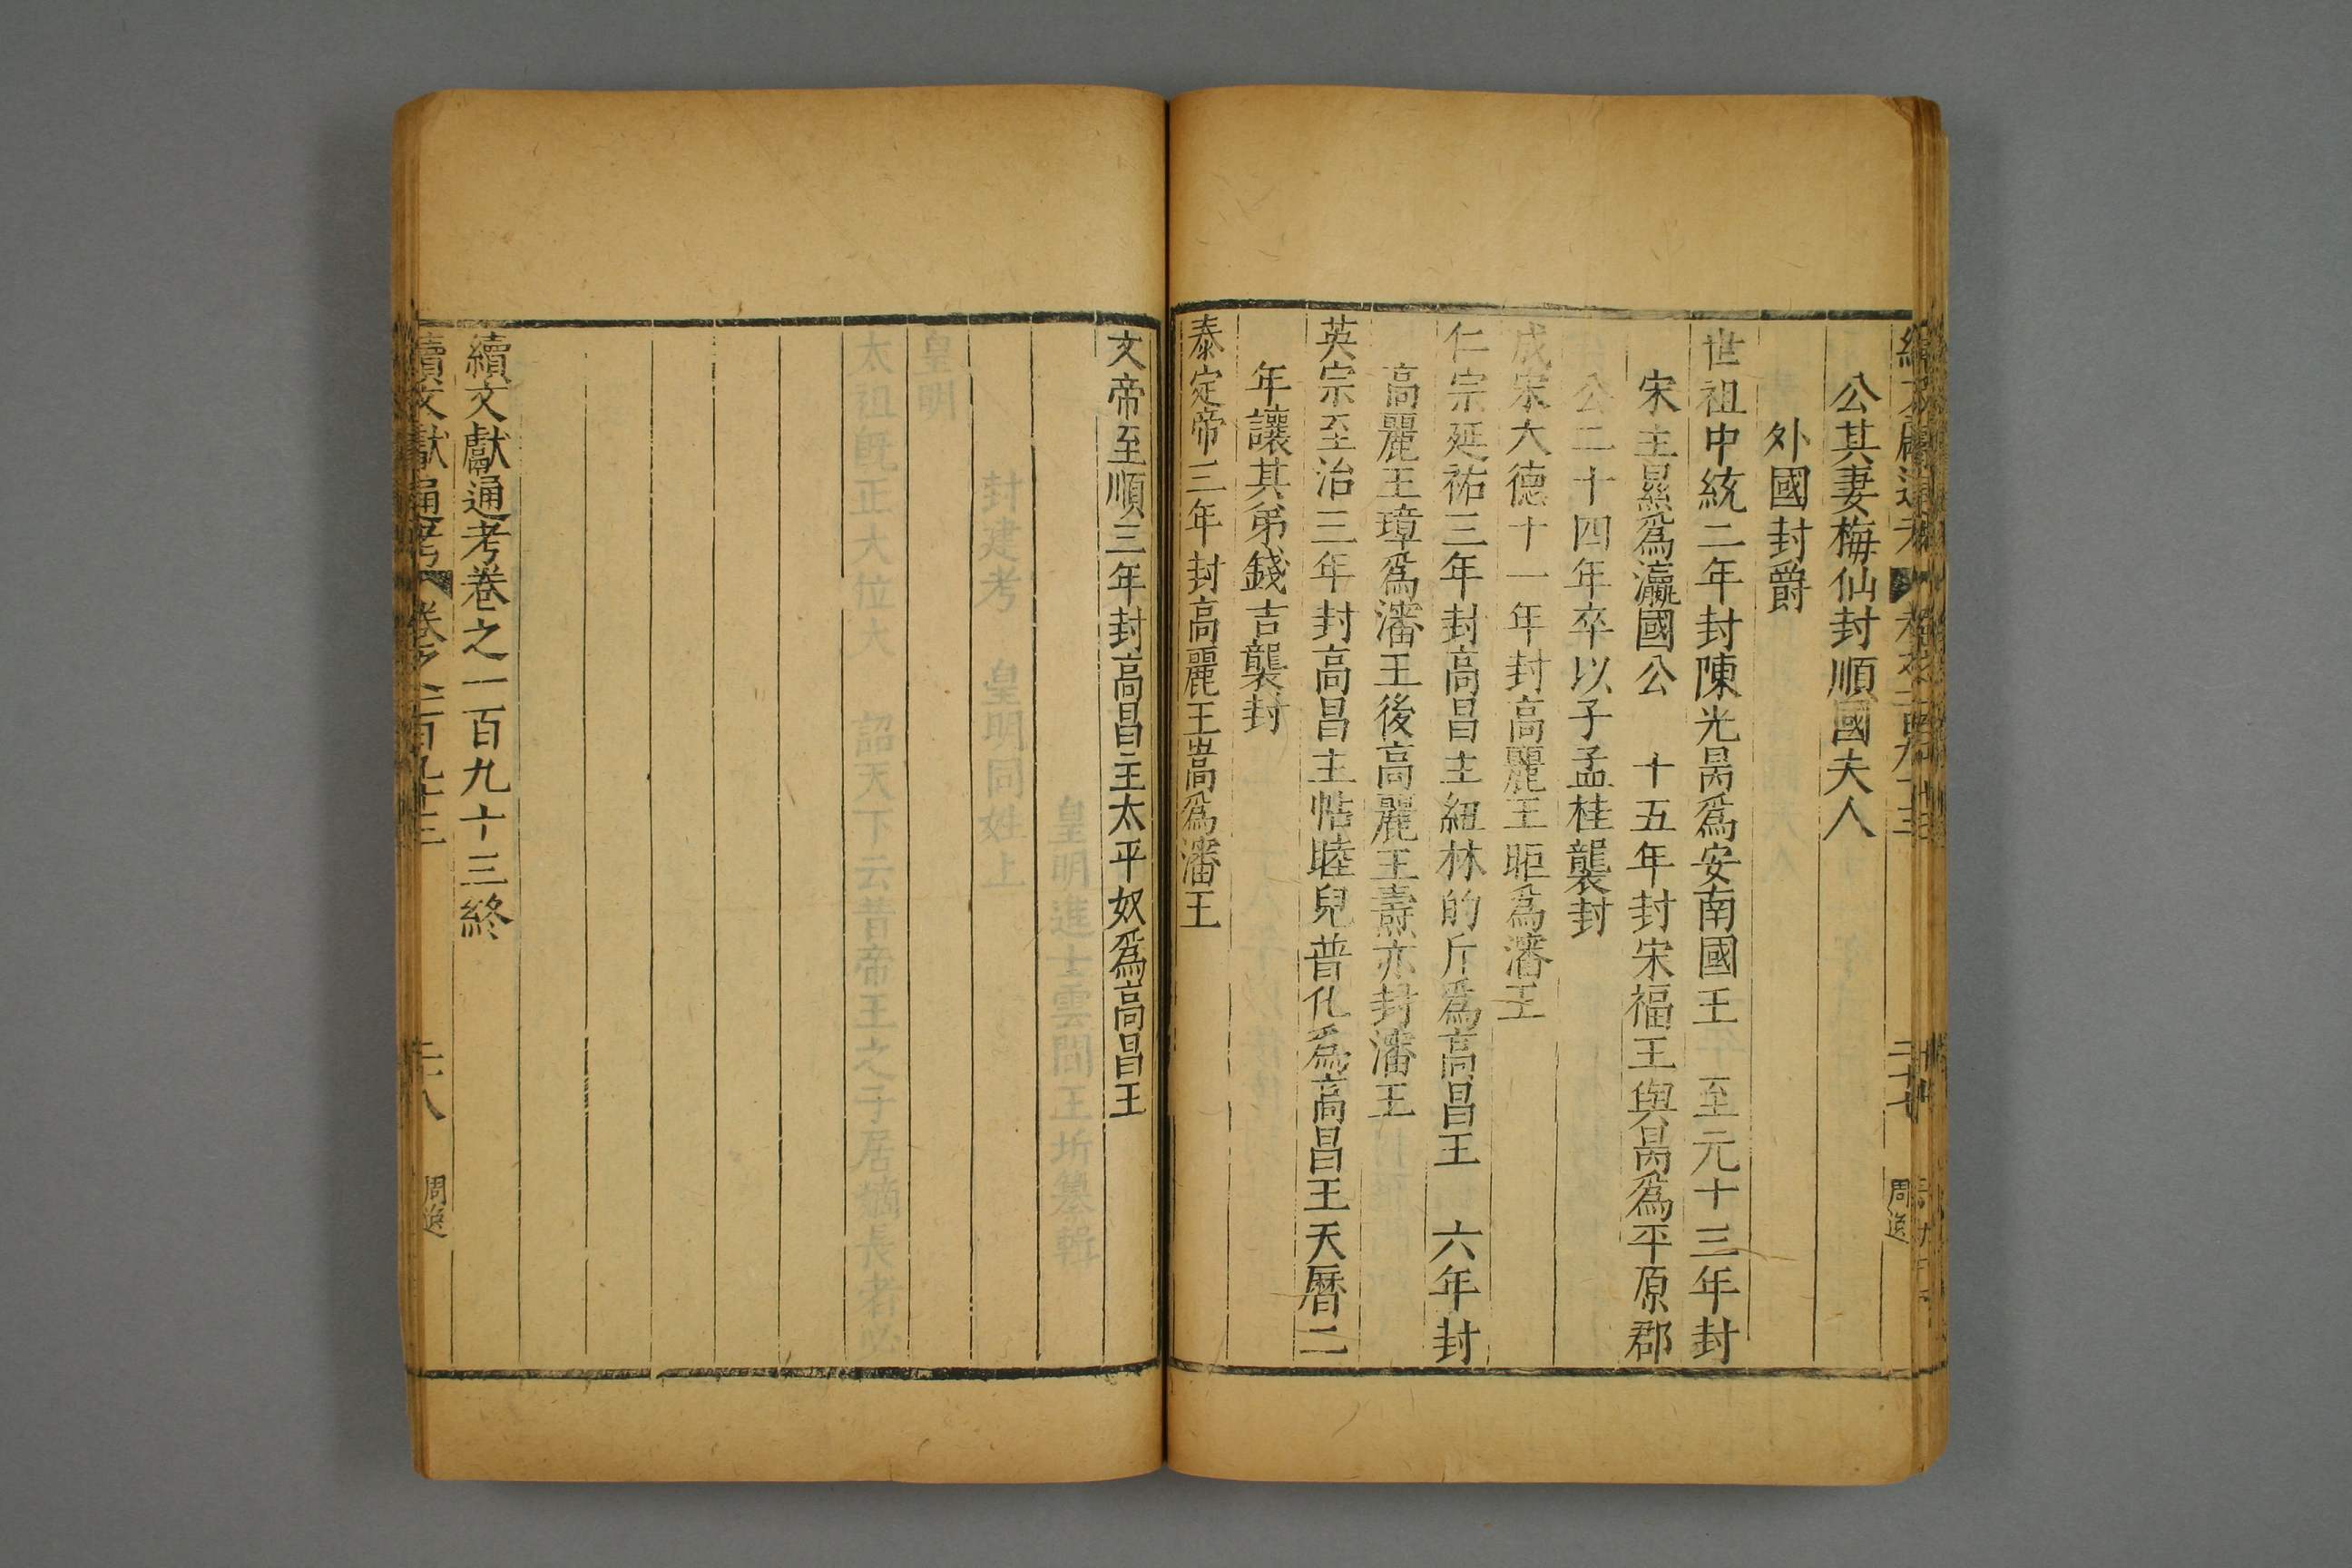 公其妻梅仙封順國夫人
外國封爵
世祖中統二年封陳光昺爲安南國王 至元十三年封
宋主㬎爲瀛國公 十五年封宋福王與昺爲平原郡
公二十四年卒以子孟桂襲封
成宗大德十一年封高麗王昛爲瀋王
仁宗延祐三年封高昌主紐林的斤爲高昌王 六年封
高麗王璋爲瀋王後高麗王燾亦封瀋王
英宗至治三年封高昌主帖睦兒普化爲高昌王天曆二
年讓其弟錢吉襲封
泰定帝三年封高麗王暠爲瀋王
文帝至順三年封高昌主太平奴爲高昌王
續文獻通考卷之一百九十三終
續文獻通考 卷之一百九十三 二十八 周